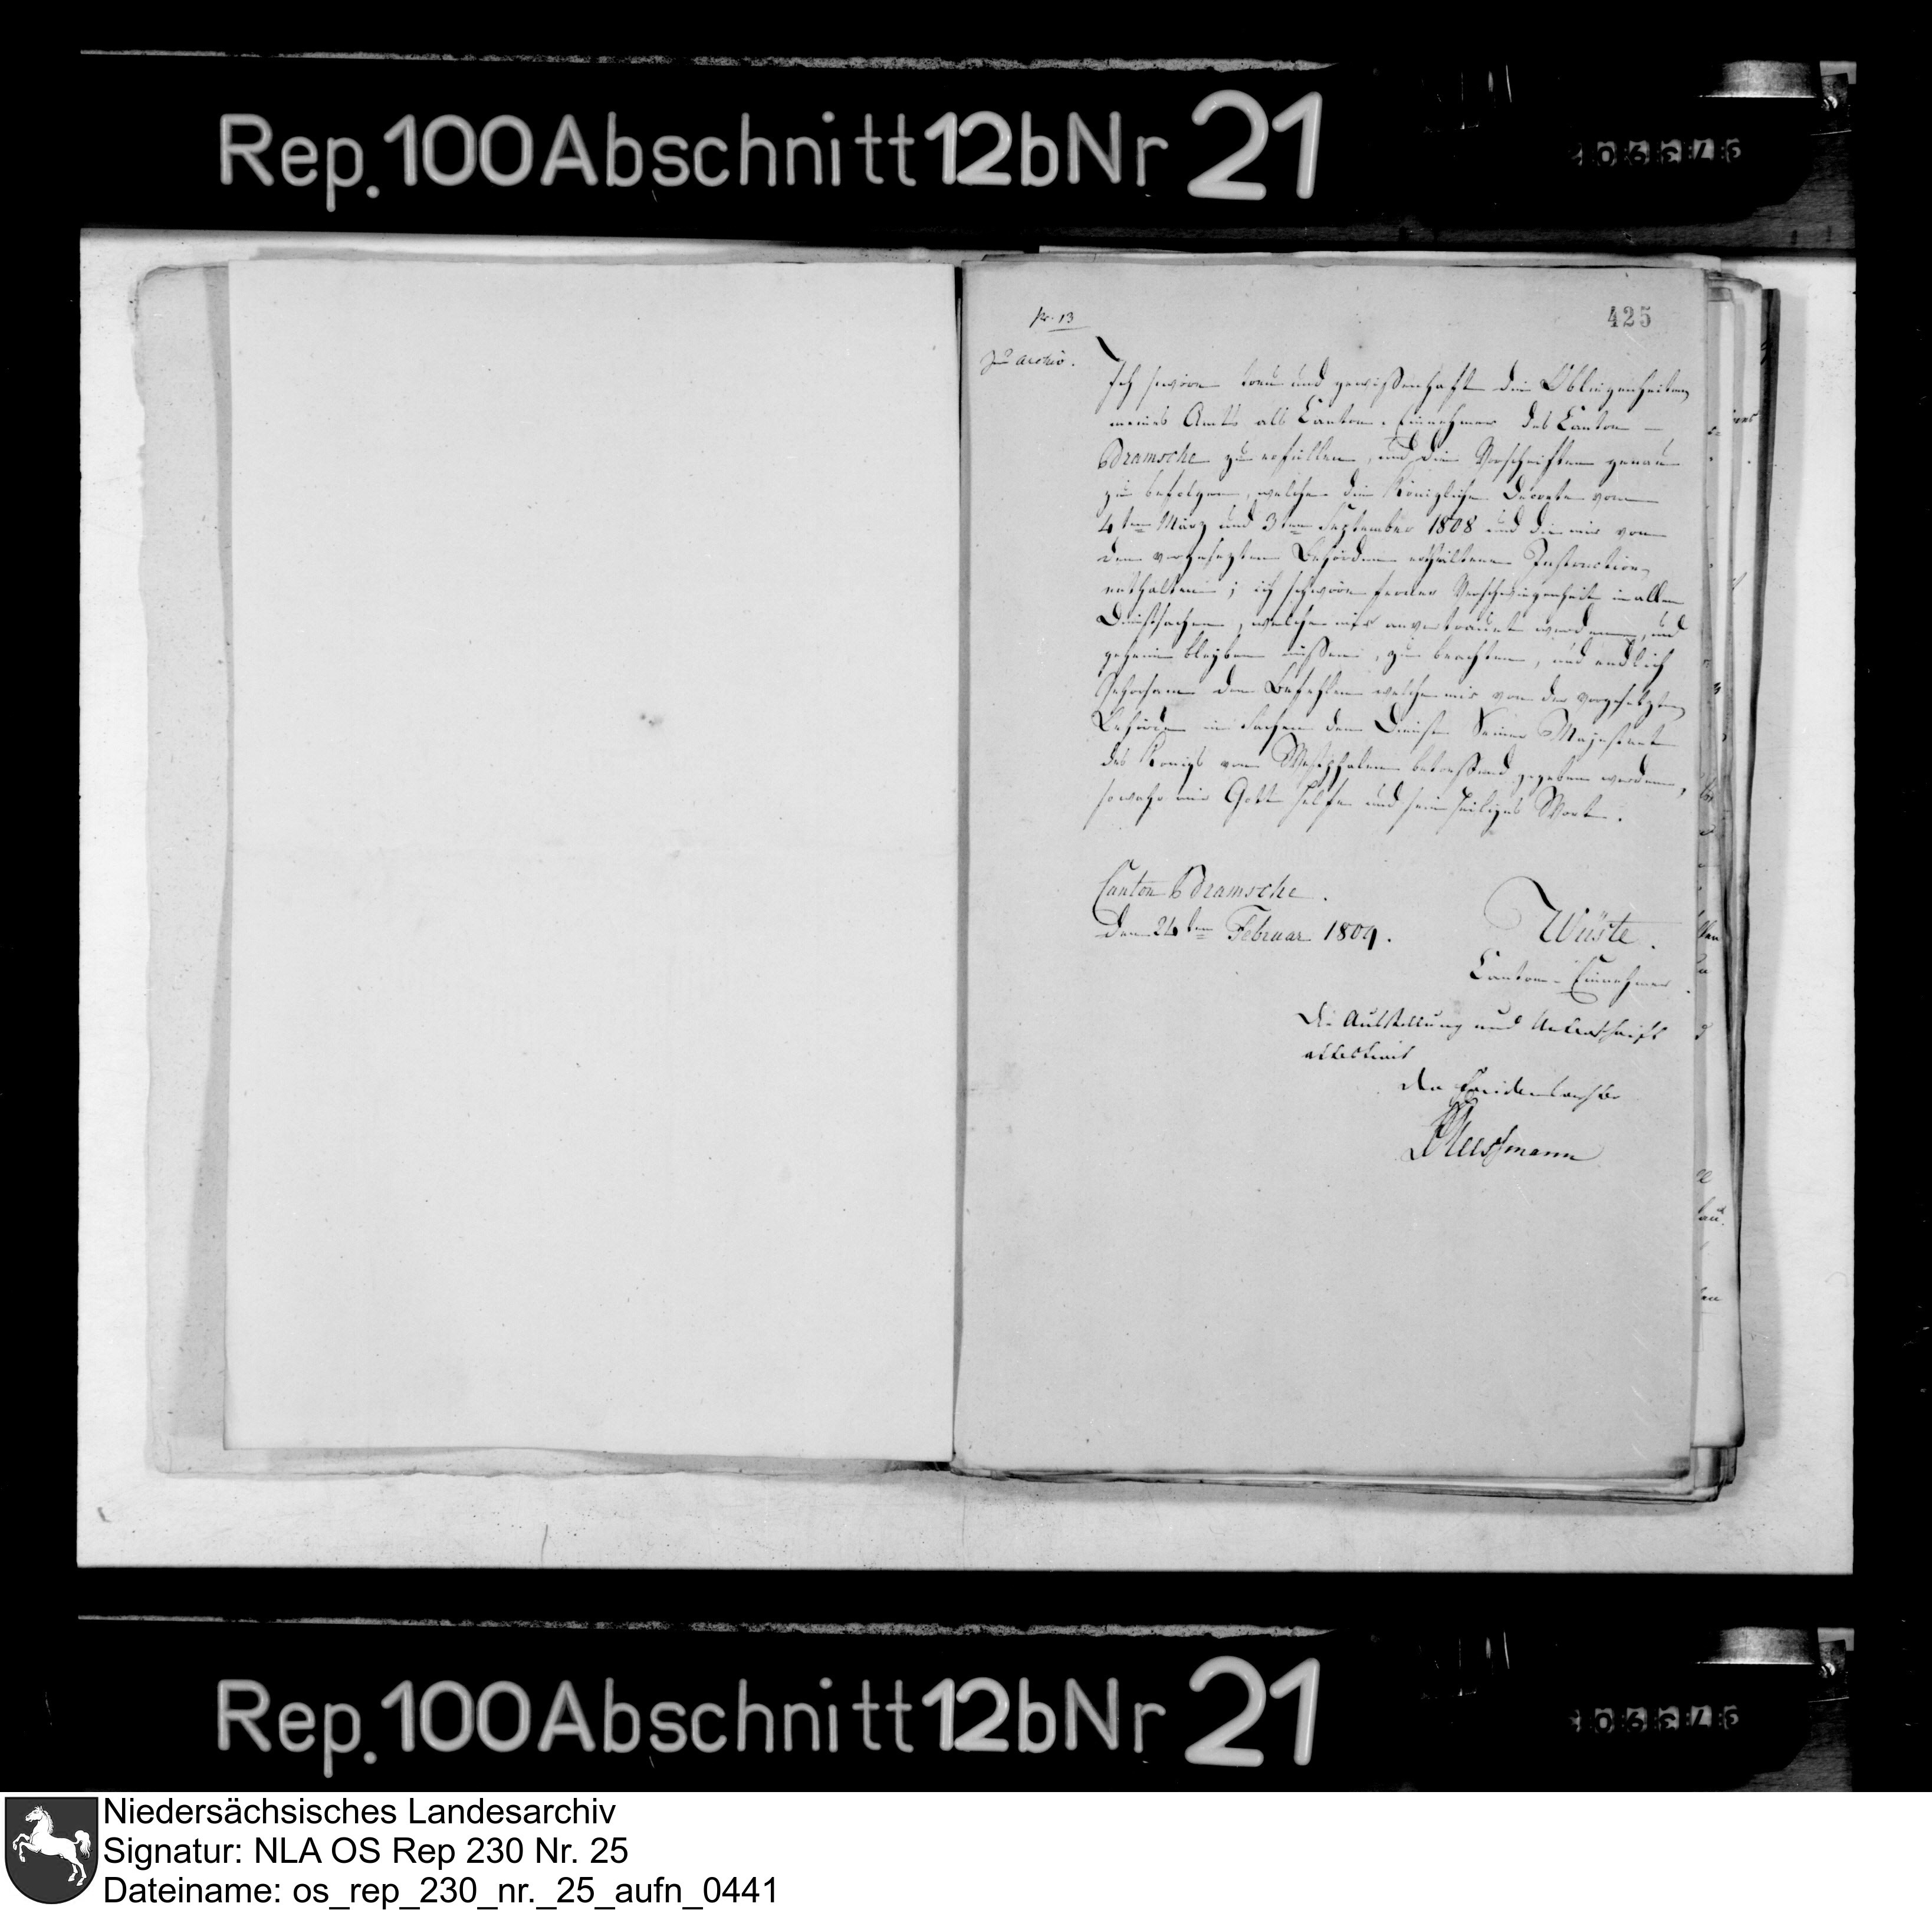 Rep. 100 Abschnitt 12b Nr 21
425
Nr. 13
Zum Archiv.
Ich schwöre treu und gewißenhaft die Obliegenheiten
meines Amts als Canton-Einnehmer des Canton
Bramsche zu erfüllen, und die Vorschriften genau
zu befolgen, welche die Königlichen Decrete vom
4ten März und 3ten September 1808 und die mir von
den vorgesezten Behörden ertheilten Instruction
enthalten; ich schwöre ferner Verschwiegenheit in allen
Dienstsachen, welche mir anvertrauet werden, und
geheim bleiben müssen, zu beachten, und endlich
Gehorsam den Befehlen welche mir von der vorgesetzten
Behörde in Sachen den Dienst Seiner Majestaet
des Konigs von Westphalen betreffend gegeben werden,
so wahr mir Gott helfe und sein heiliges Wort.
Canton Bramsche.
Den 24ten Februar 1809.
Wüste.
Canton-Einnehmer
Die Ausstellung und Unterschrift
attestirt
der Friedensrichter
Niedersächsisches Landesarchiv
Signatur: NLA OS Rep 230 Nr. 25
Dateiname: os_rep_230_nr._25_aufn_0441
Rep. 100 Abschnitt 12b Nr 21